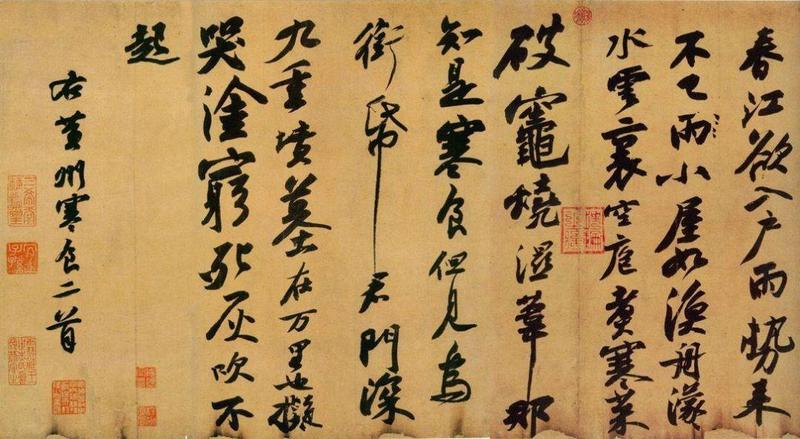 春江欲入戶雨勢来
不已雨小屋如漁舟濛
水雲裏空庖煮寒菜
破竈燒濕葦那
知是寒食但見烏
銜帋君門深
九重墳墓在万里也擬
哭塗窮死灰吹不
起
右黃州寒食二首